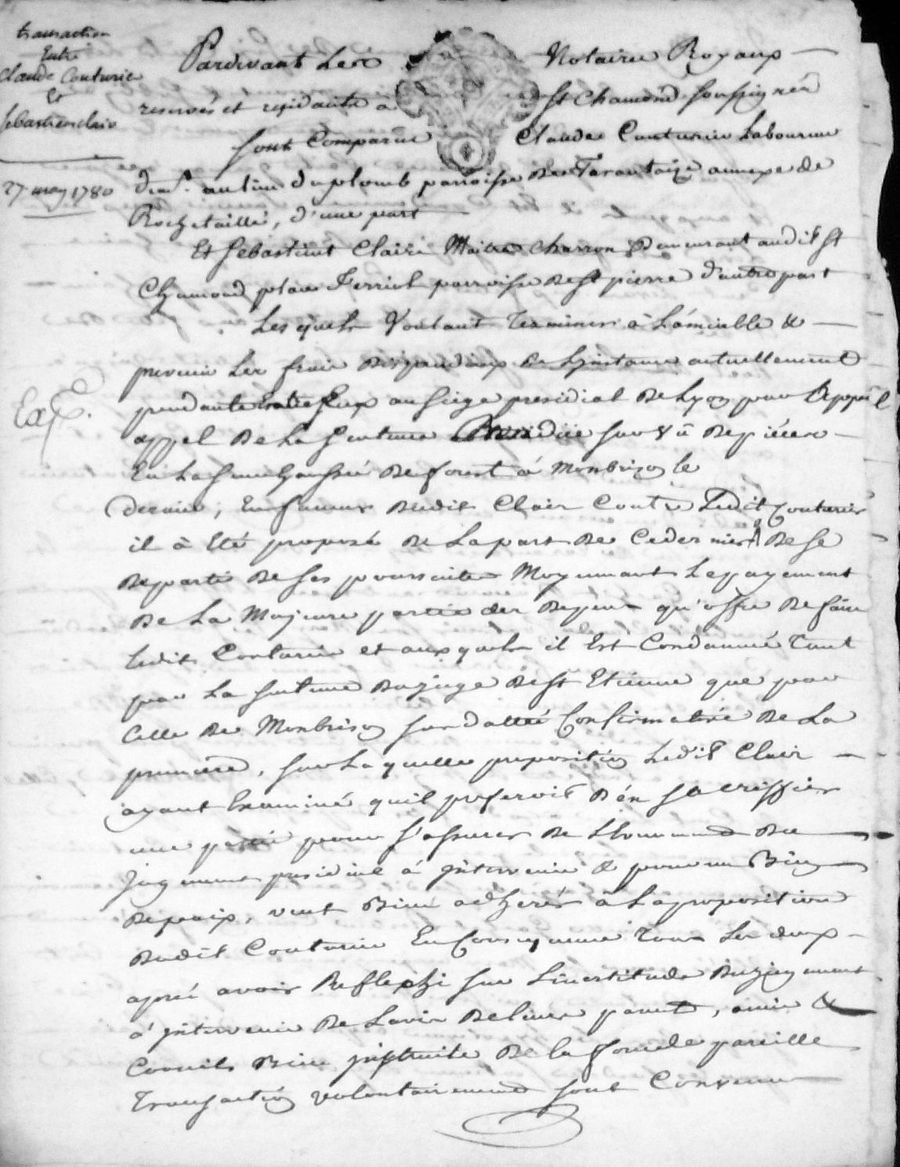 transaction
Entre
Claude Couturie
Et
Sebastien clair
27 may 1780
Exp.
Pardevant Les Notaires Royaux
reservés et residants a St Chamond soussignés
sont Comparus Claude Couturier Laboureur
dem.t au lieu du plomb parroisse de Tarantaize annexe de
Rochetaillé, d'une part
Et Sebastient Clair Maitre charron Demeurant audit St
Chamond place ferriol parroisse de St pierre d'autre part
Lesquels Voulant Terminer à L'amiable &
prevenir Les frais de Linstance actuellement
pendante Entre Eux au siege presidial De Lyon pour
appel De La Sentence Rendue sur De pièces
En La senechaussée De forest à Monbrison le
dernier, En faveur Dudit Clair Contre Ledit Couturier
il à Eté proposé De La part De Ce dernier De se
Departir De ses poursuites Moyennant Le payement
De La Majeure partie des Depens qu'offre De faire
Ledit Couturier et auxquels il Est Condamné Tant
par La sentence Du juge De St Etienne que par
Celle De Monbrison sur dattée Confirmative De La
premiere, sur Laquelle proposition Ledit Clair
ayant Examiné qu'il préferoit D'en sacriffier
une partie pour s'assurer De L'evenement Du
jugement presidial à Intervenir & pour un Bien
De paix, veut Bien adherer à La proposition
Dudit Couturier En Consequence Tous Les deux
aprés avoir Reflechi sur L'incertitude Du jugement
à Intervenir De L'avis De leurs parents, amis &
Conseils Bien instruits De la force de pareille
Transaction volontairement sont Convenus